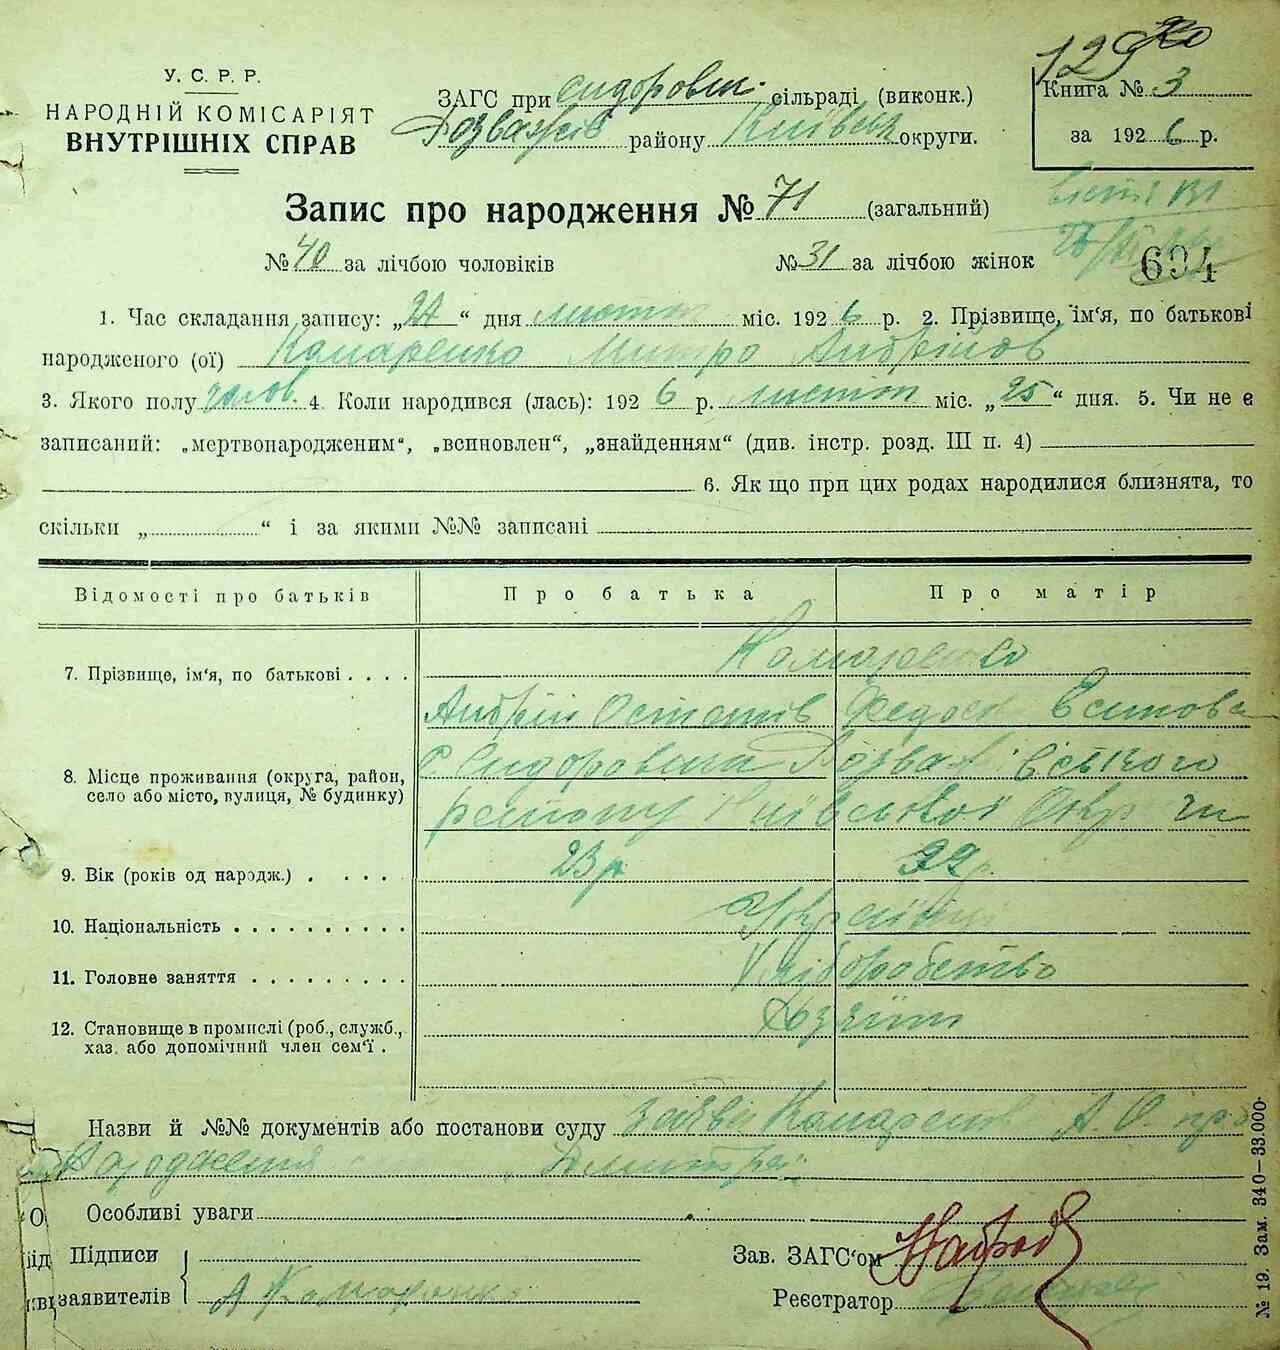 129
У. С. Р. Р.
НАРОДНІЙ КОМІСАРІЯТ
ВНУТРІШНІХ СПРАВ
ЗАГС при Сидорович. сільраді (виконк.)
Розважів району Київськ округи.
Книга № 3
за 1926 р.
Запис про народження № 71 (загальний)
№ 40 за лічбою чоловіків № 31 за лічбою жінок
694
1. Час складання запису: „27“ дня лютого міс. 1926 р. 2. Прізвище, ім'я, по батькові
народженого (ої) Комаренко Митро Андрійов
3. Якого полу чолов. 4. Коли народився (лась): 1926 р. лютого міс. „25“ дня. 5. Чи не є
записаний: „мертвонародженим“, „всиновлен“, „знайденням“ (див. інстр. розд. III п. 4)
6. Як що при цих родах народилися близнята, то
скільки „ “ і за якими №№ записані
Відомості про батьків Про батька Про матір
7. Прізвище, ім'я, по батькові . . . . Комаренко
Андрій Остапів Федося
8. Місце проживання (округа, район,
село або місто, вулиця, № будинку)
с Сидоровичи Розважівського
району Київської Округи
9. Вік (років од народж.) . . . . . 23 р. 22 р.
10. Національність . . . . . . . . . . Українці
11. Головне заняття . . . . . . . . . Хліборобство
12. Становище в промислі (роб., служб.,
хаз. або допомічний член сем'ї . Хозяїни
Назви й №№ документів або постанови суду заява Комаренко А. О. про
народження
Особливі уваги
Підписи
заявителів
А Комаренко
Зав. ЗАГС'ом
Реєстратор
№ 19. Зам. 340—33.000.